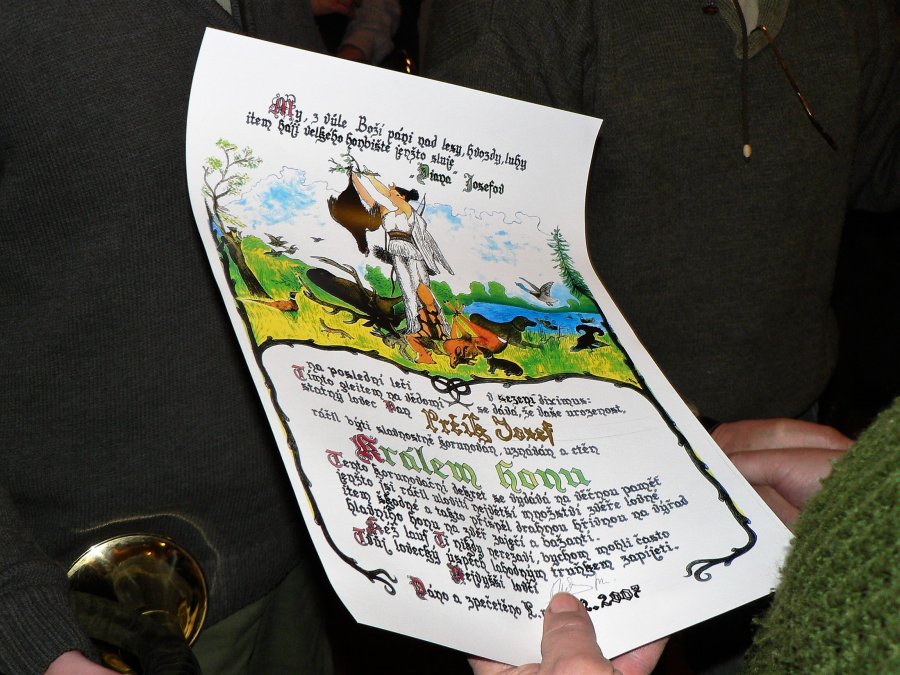 My, z vůle Boží páni nad lesy, hvozdy, luhy
item háji velkého honbiště jenžto sluje
"Diana" Josefov
na poslední leči v sezení diximus:
Tímto glejtem na vědomí se dává, že vaše urozenost,
statný lovec Pan
Prčík Jozef
ráčil býti slavnostně korunován, uznáván a ctěn
Králem honu
Tento korunovační dekret se vydává na věčnou paměť
jenžto jsi ráčil uloviti největší množství zvěře lovné
item škodné a takto přispěl drahnou hřivnou na výřad
hladního honu na zvěř zaječí a bažanti.
Kéž lauf Ti nikdy nerezaví, bychom mohli často
Tvůj lovecký úspěch lahodným trunkem zapíjeti.
Nejvyšší lovčí
Dáno a zpečetěno L. 2.2007